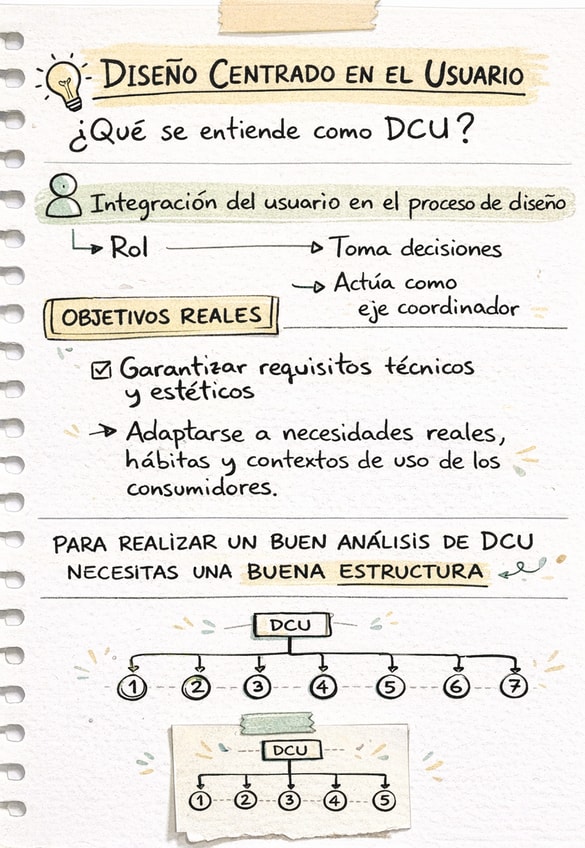 DISEÑO CENTRADO EN EL USUARIO
¿Qué se entiende como DCU?
Integración del usuario en el proceso de diseño
Rol
Toma decisiones
Actúa como
eje coordinador
OBJETIVOS REALES
Garantizar requisitos técnicos
y estéticos
Adaptarse a necesidades reales,
hábitas y contextos de uso de los
consumidores.
PARA REALIZAR UN BUEN ANÁLISIS DE DCU
NECESITAS UNA BUENA ESTRUCTURA
DCU
1 2 3 4 5 6 7
DCU
1 2 3 4 5